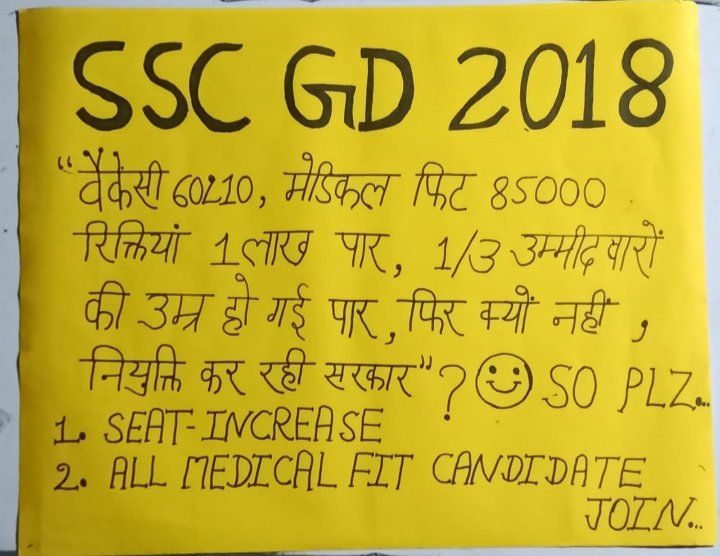 SSC GD 2018
“वैकेंसी 60210, मेडिकल फिट 85000
रिक्तियां 1 लाख पार, 1/3 उम्मीदवारों
की उम्र हो गई पार, फिर क्यों नहीं,
नियुक्ति कर रही सरकार”? SO PLZ...
1. SEAT-INCREASE
2. ALL MEDICAL FIT CANDIDATE
JOIN...